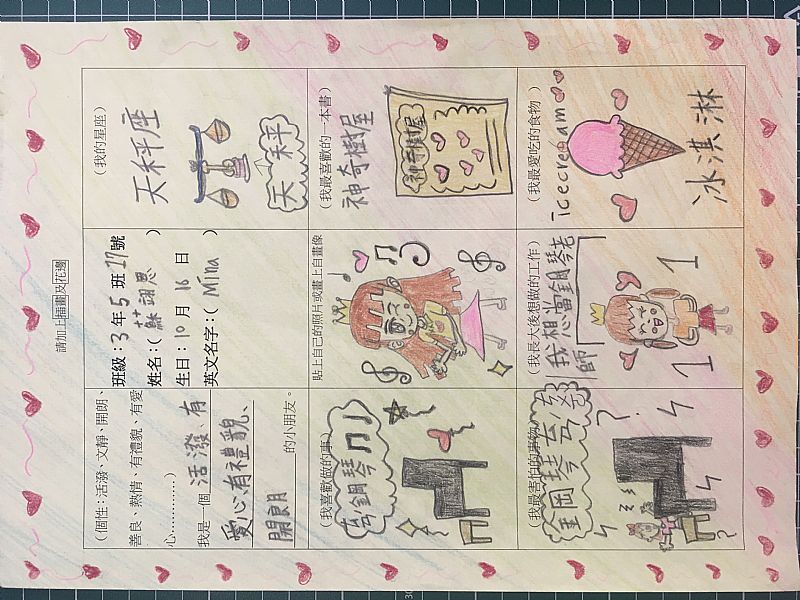 請加上插畫及花邊
(個性：活潑、文靜、開朗、
善良、熱情、有禮貌、有愛
心…………)
我是一個 活潑、有
愛心有禮貌、
開朗 的小朋友。
班級：3 年 5 班 17 號
姓名：( 蘇翊恩 )
生日：10 月 16 日
英文名字：( Mina )
(我的星座)
天秤座
天秤
(我喜歡做的事)
鋼琴
貼上自己的照片或畫上自畫像
(我最喜歡的一本書)
神奇樹屋
神奇樹屋
(我最害怕的事物)
鋼琴
?
?
(我長大後想做的工作)
我想當鋼琴老
師
(我最愛吃的食物)
icecream
冰淇淋